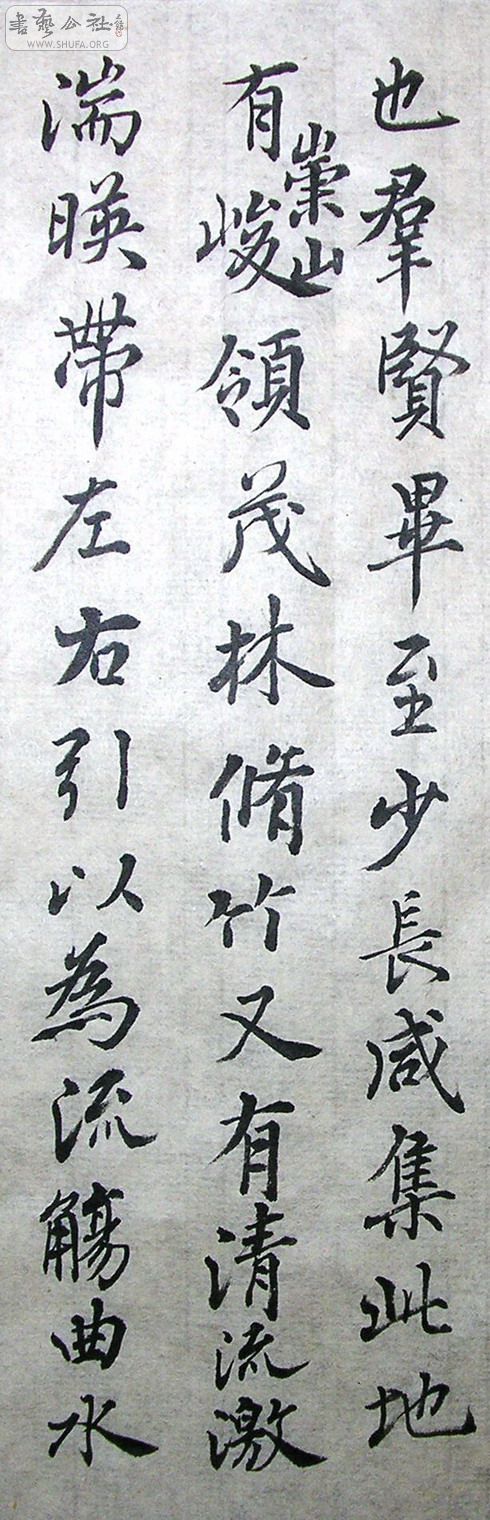 書藝公社
WWW.SHUFA.ORG
也羣賢畢至少長咸集此地
有崇山峻領茂林脩竹又有清流激
湍暎帶左右引以為流觴曲水